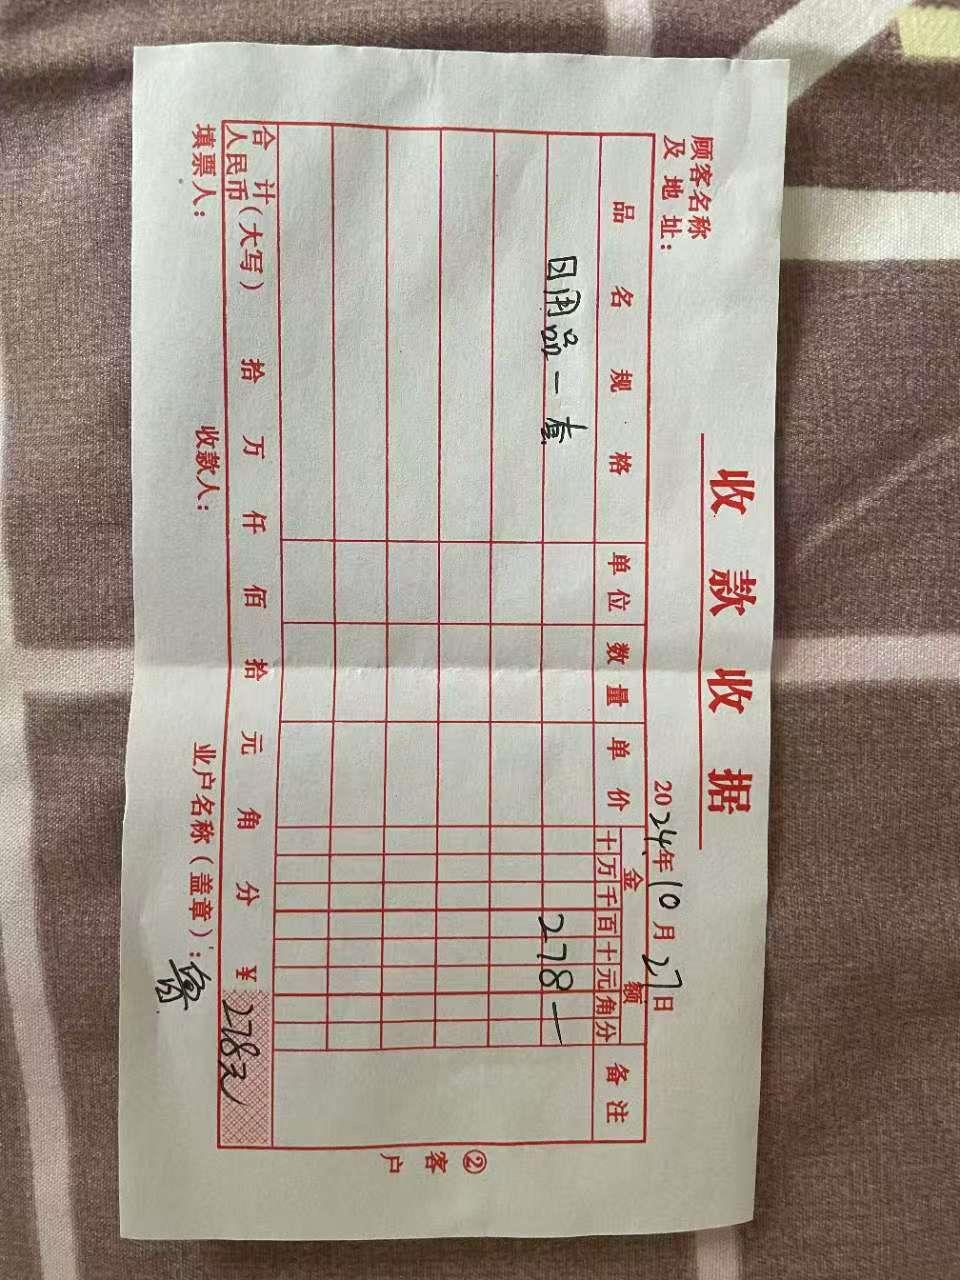 收款收据
2024年10月27日
顾客名称
及地址：
品名规格 单位 数量 单价 金额 备注
十万千百十元角分
日用品一 278—
合计
人民币（大写） 拾 万 仟 佰 拾 元 角 分 ¥ 278元
填票人： 收款人： 业户名称（盖章）：
②客户